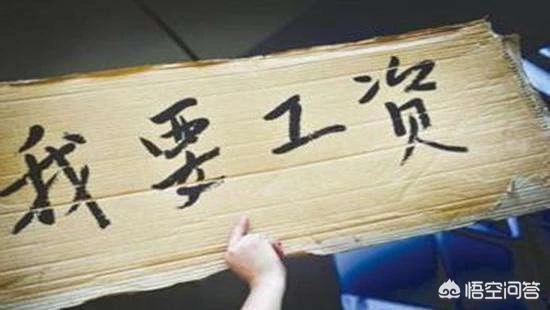 我要工资
悟空问答